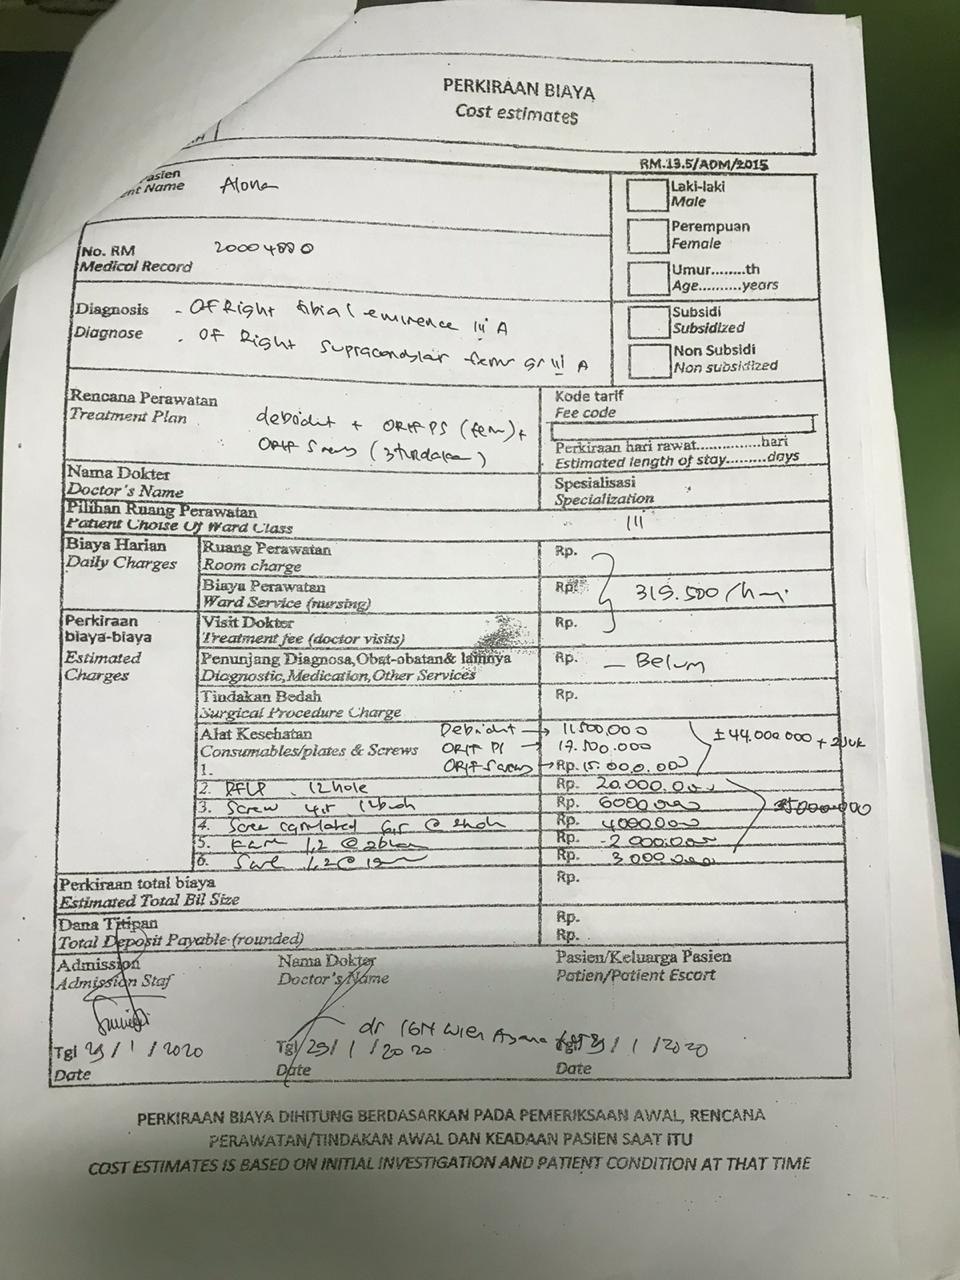 PERKIRAAN BIAYA
Cost estimates
RM.13.5/ADM/2015
asien
nt Name Alona
Laki-laki
Male
Perempuan
Female
No. RM 20004880
Medical Record
Umur........th
Age..........years
Diagnosis - OF Right tibial eminence III A
Diagnose . OF Right supracondylar femur gr III A
Subsidi
Subsidized
Non Subsidi
Non subsidized
Rencana Perawatan
Treatment Plan debridit + ORIF PS (fem) +
ORIF Screws (3 tindakan)
Kode tarif
Fee code
Perkiraan hari rawat...............hari
Estimated length of stay.........days
Nama Dokter
Doctor's Name
Spesialisasi
Specialization
Pilihan Ruang Perawatan
Patient Choise Of Ward Class III
Biaya Harian
Daily Charges
Ruang Perawatan Rp.
Room charge
Biaya Perawatan Rp. 319.500/hari
Ward Service (nursing)
Perkiraan
biaya-biaya
Estimated
Charges
Visit Dokter Rp.
Treatment fee (doctor visits)
Penunjang Diagnosa,Obat-obatan& lainnya Rp. - Belum
Diagnostic,Medication,Other Services
Tindakan Bedah Rp.
Surgical Procedure Charge
Alat Kesehatan Debridit → 11.500.000
Consumables/plates & Screws ORIF PS → 17.500.000 ± 44.000.000 + 2 Juta
1. ORIF Screws → Rp. 15.000.000
2. DFLP 12 hole Rp. 20.000.000
3. Screw 12 buah Rp. 6000.000 35.000.000
4. Screw @ 2 buah Rp. 4000.000
5. 1,2 @ 2 Rp. 2.000.000
6. 1,2 @ Rp. 3.000.000
Perkiraan total biaya Rp.
Estimated Total Bil Size
Dana Titipan Rp.
Total Deposit Payable (rounded) Rp.
Admission Nama Dokter Pasien/Keluarga Pasien
Admission Staf Doctor's Name Patien/Patient Escort
dr IGN Wien
Tgl 29/1/2020 Tgl 29/1/2020 Tgl 29/1/2020
Date Date Date
PERKIRAAN BIAYA DIHITUNG BERDASARKAN PADA PEMERIKSAAN AWAL, RENCANA
PERAWATAN/TINDAKAN AWAL DAN KEADAAN PASIEN SAAT ITU
COST ESTIMATES IS BASED ON INITIAL INVESTIGATION AND PATIENT CONDITION AT THAT TIME